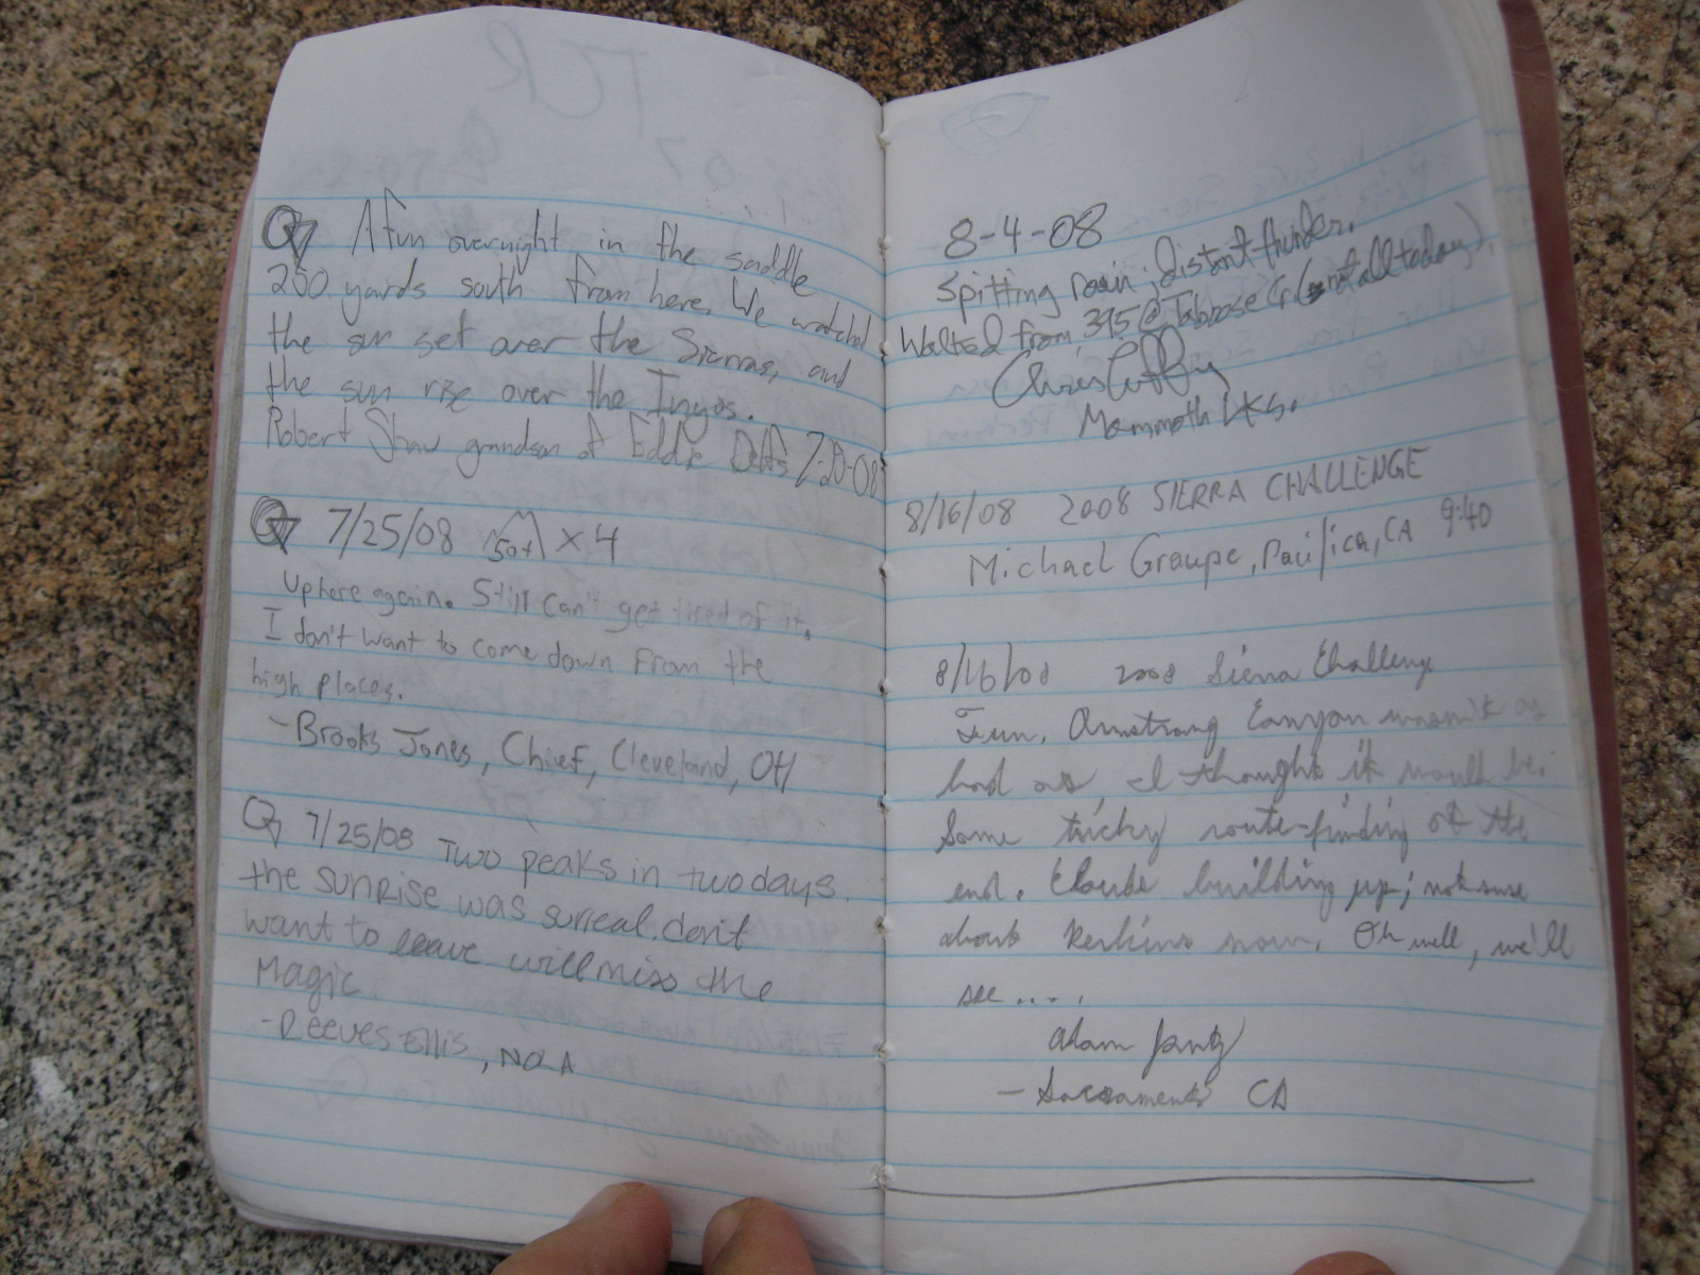 A fun overnight in the saddle
250 yards south from here. We watched
the sun set over the Sierras, and
the sun rise over the Inyos.
Robert Shaw grandson of Eddie 7-20-08
7/25/08 50+ x 4
Up here again. Still can't get tired of it.
I don't want to come down from the
high places.
- Brooks Jones, Chief, Cleveland, OH
7/25/08 Two peaks in two days.
the sunrise was surreal. don't
want to leave will miss the
Magic.
- Reeves Ellis, NOLA
8-4-08
Spitting rain; distant thunder.
Walked from 395 @ Taboose Cr. (not all today).
Chris
Mammoth Lks.
8/16/08 2008 SIERRA CHALLENGE
Michael Graupe, Pacifica, CA 9:40
8/16/08 2008 Sierra Challenge
Fun. Armstrong Canyon wasn't as
bad as I thought it would be.
Some tricky route-finding at the
end. Clouds building up; not sure
about Perkins now. Oh well, we'll
see ....
Adam Jantz
- Sacramento CA